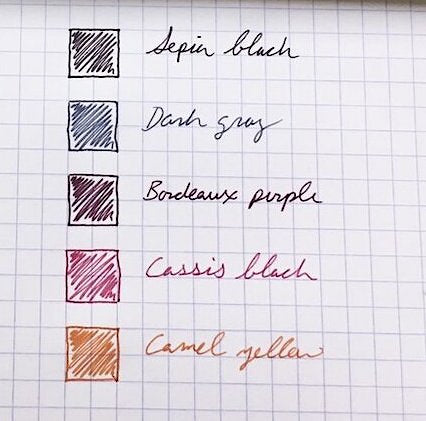 Sepia black
Dark gray
Bordeaux purple
Cassis black
Camel yellow